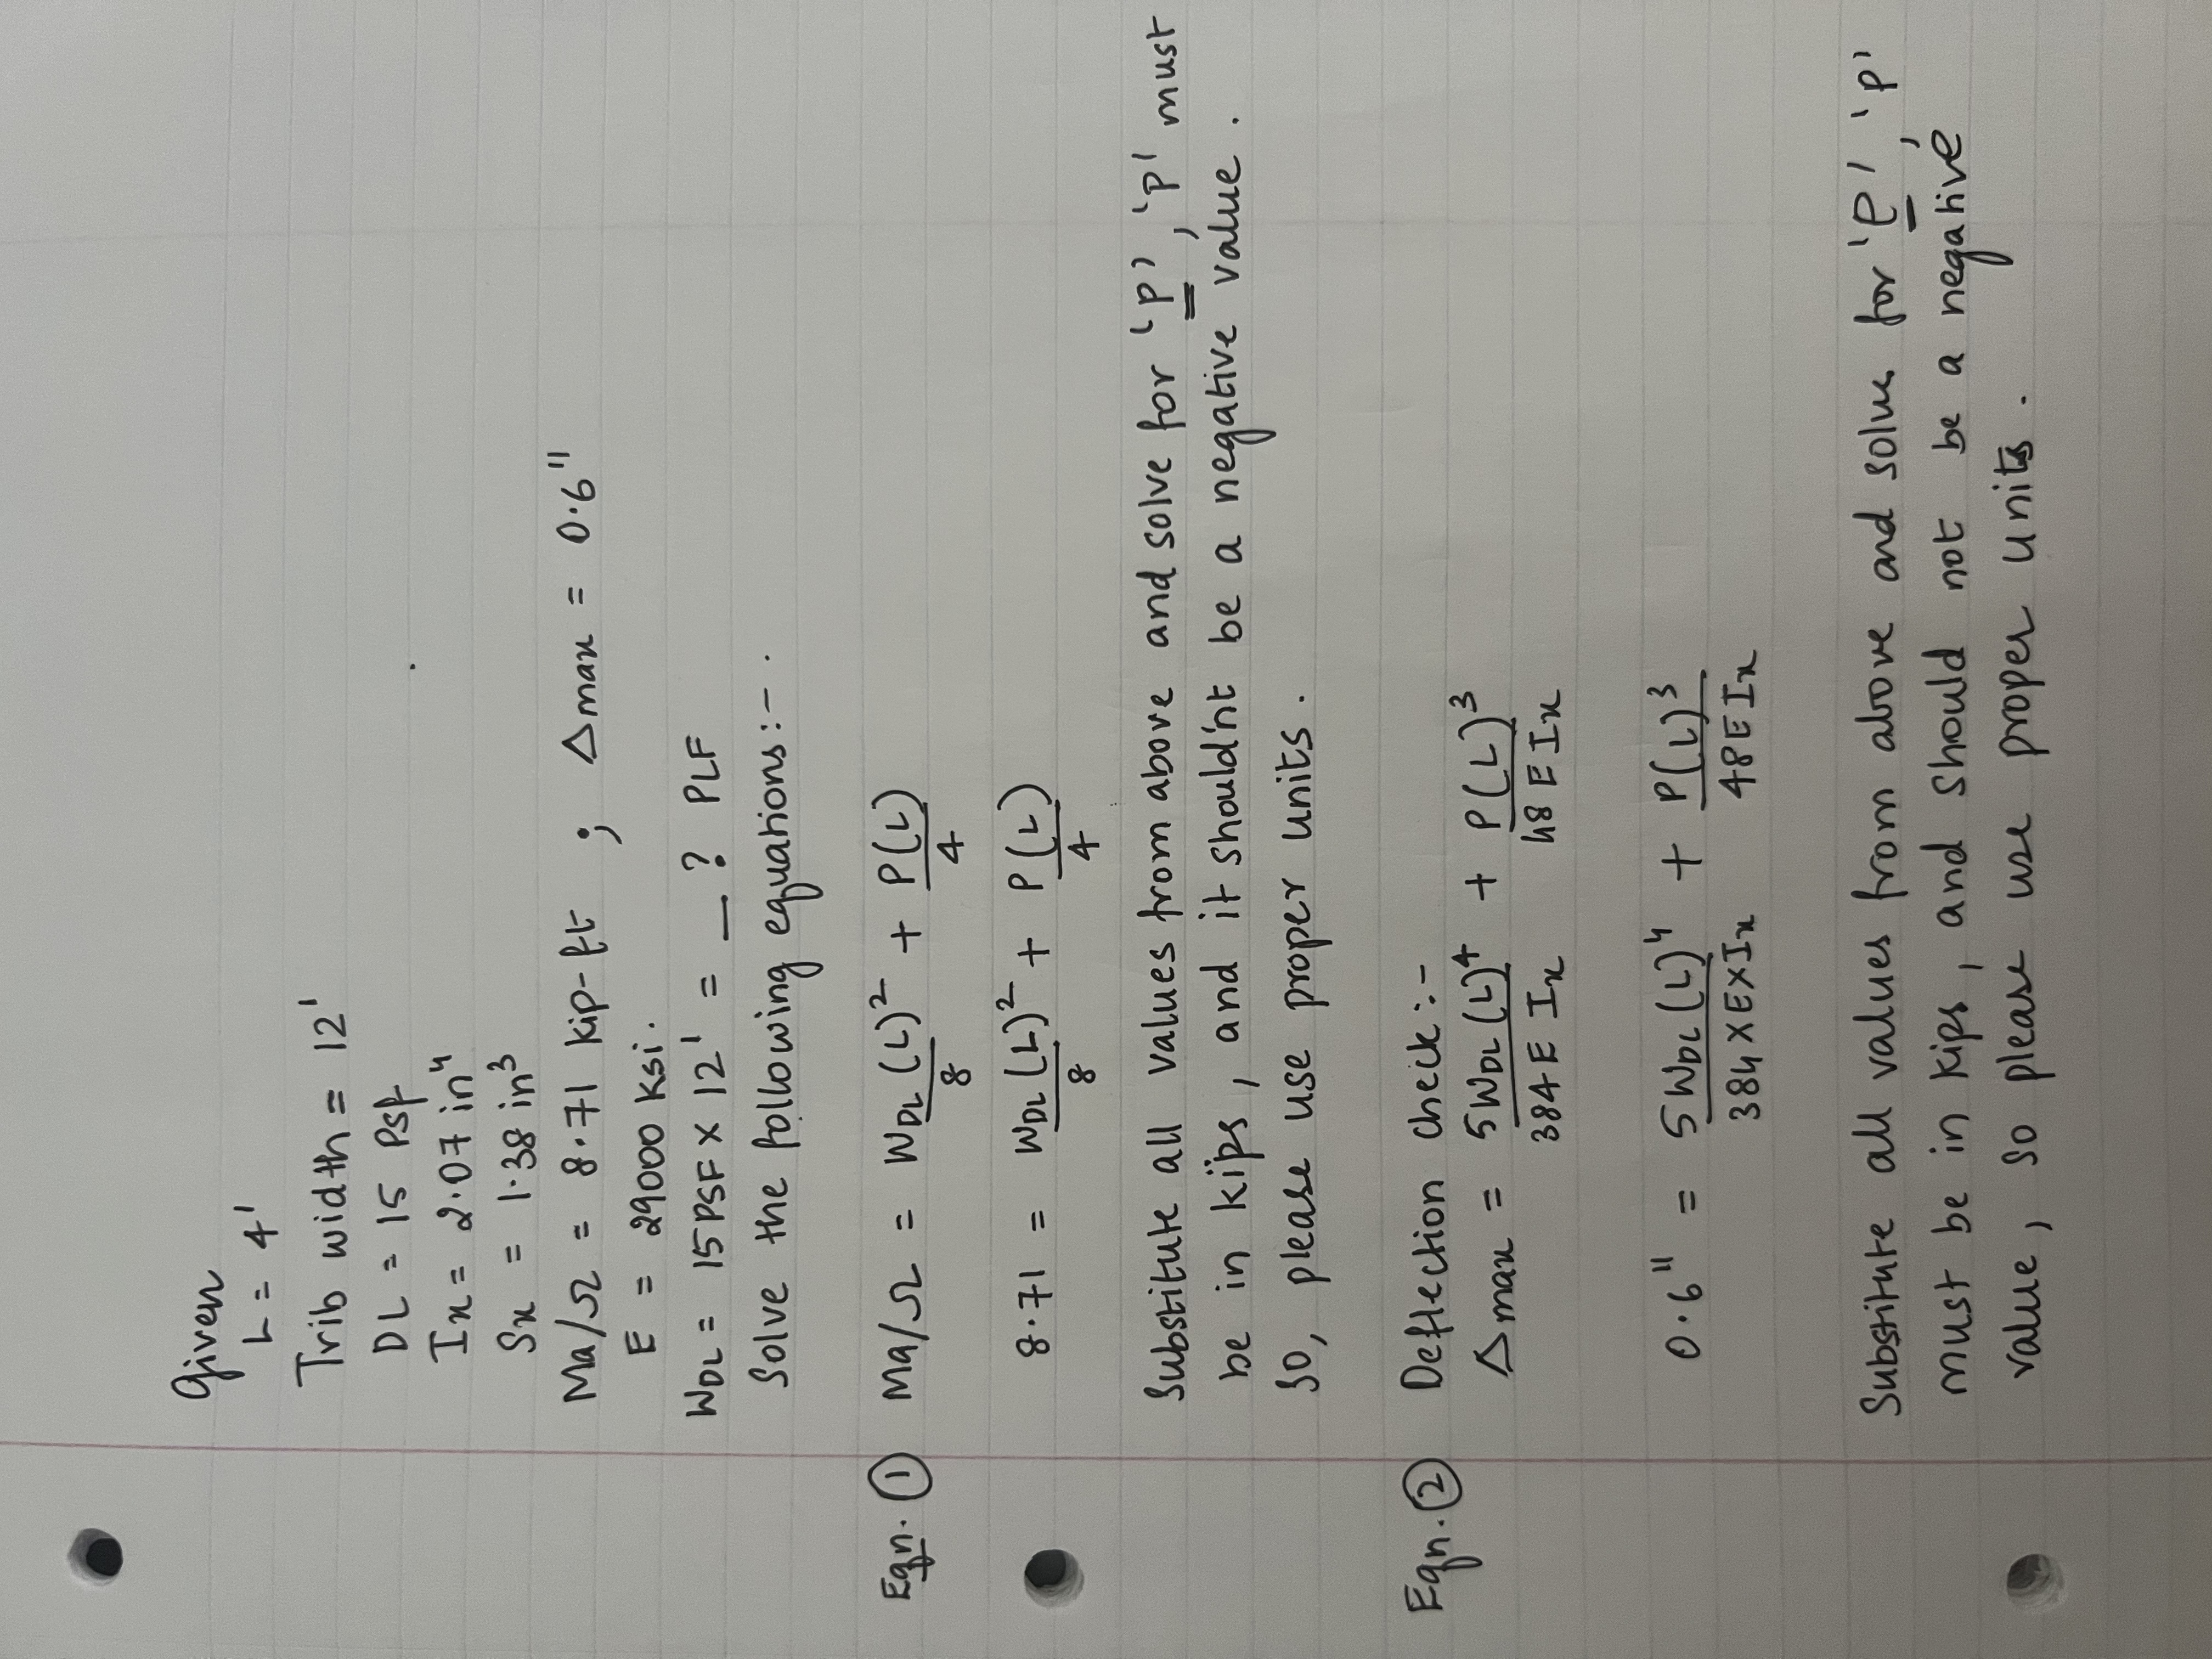 Given
L = 4'
Trib width = 12'
DL = 15 Psf
Ix = 2.07 in⁴
Sx = 1.38 in³
Ma/Ω = 8.71 kip-ft ; Δmax = 0.6"
E = 29000 Ksi.
WDL = 15PSF x 12' = _? PLF
Solve the following equations:-.
Eqn. ① Ma/Ω = WDL(L)²/8 + P(L)/4
8.71 = WDL(L)²/8 + P(L)/4
Substitute all values from above and solve for 'P', 'P' must
be in kips, and it should'nt be a negative value.
So, please use proper units.
Eqn. ② Deflection check:-
Δmax = 5WDL(L)⁴/384EIx + P(L)³/48EIx
0.6" = 5WDL(L)⁴/384xExIx + P(L)³/48EIx
Substitute all values from above and solve for 'P', 'P'
must be in kips, and should not be a negative
value, so please use proper units.